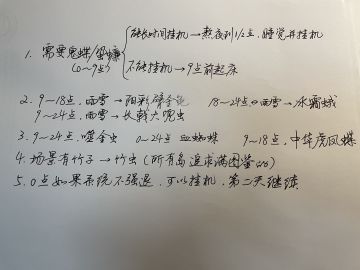 能长时间挂机→熬夜到1/2点,睡觉并挂机
1. 需要鬼蝶/蛩蠊
(0~9点)
不能挂机→9点前起床
2. 9~18点,雨雪→阳彩臂金龟 18~24点,雨雪→冰霜蛾
9~24点,雨雪→长戟大呢虫
3. 9~24点,噬金虫 0~24点 血蜘蛛 9~18点,中华虎凤蝶
4. 场景有竹子→竹虫(所有岛追求满图鉴的)
5. 0点如果系统不强退,可以挂机,第二天继续